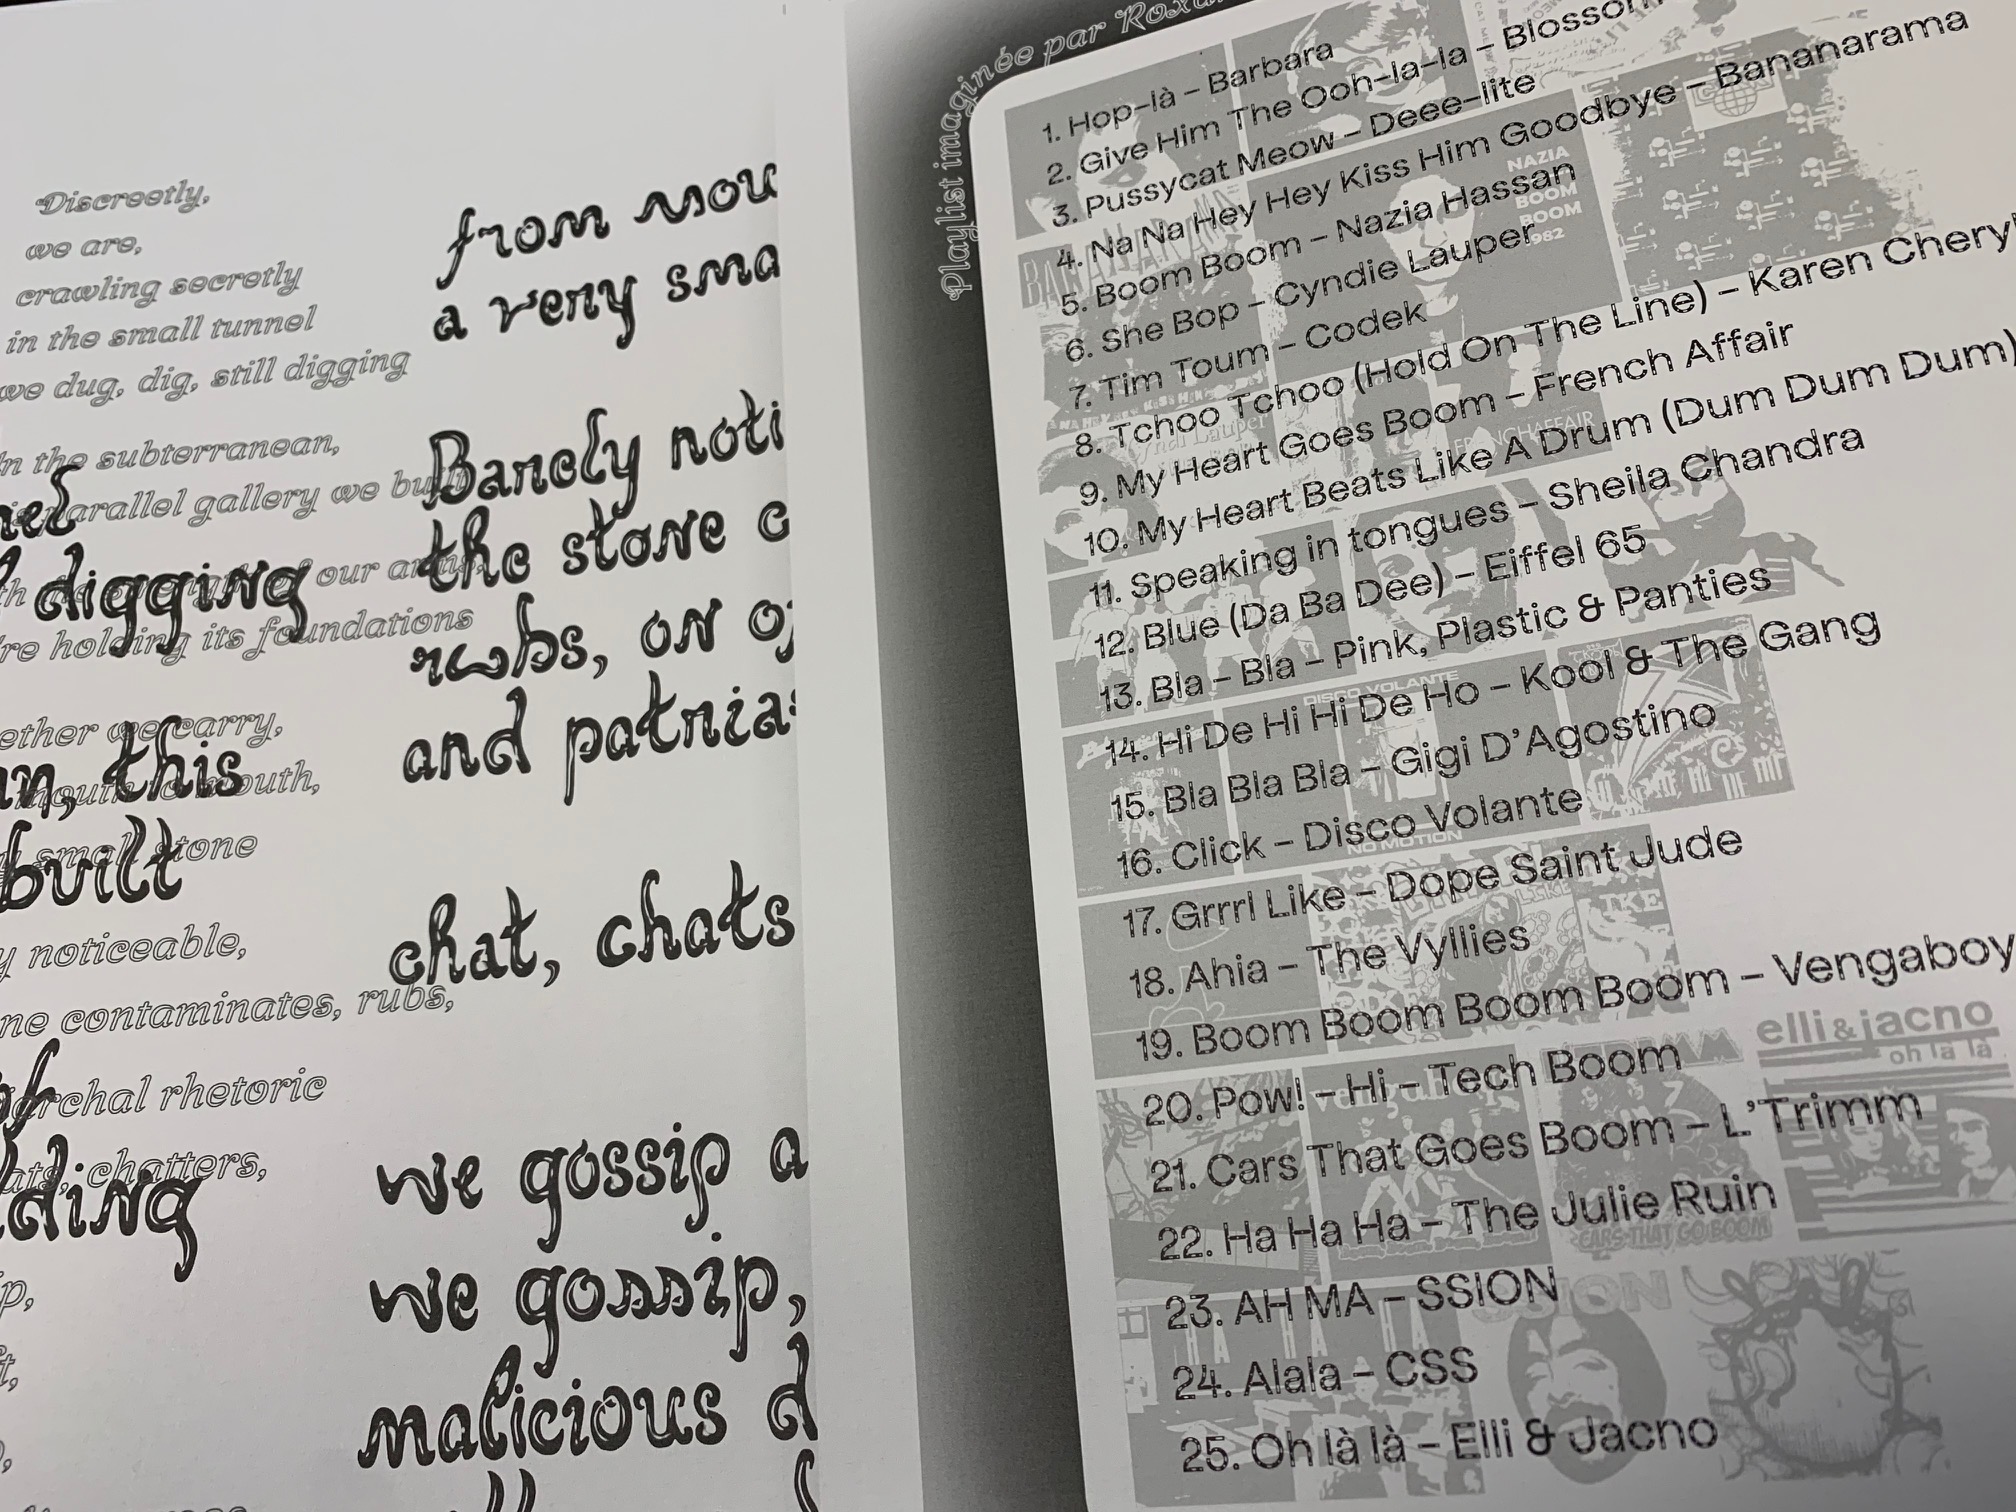 Discreetly,
we are,
crawling secretly
in the small tunnel
we dug, dig, still digging
In the subterranean,
parallel gallery we built
our arms,
holding its foundations
we carry,
mouth,
small stone
noticeable,
contaminates, rubs,
rhetoric
chatters,
digging
this
built
from
a very
Barely
the stone
rubs, on
and
chat, chats
we gossip
we gossip,
malicious
Playlist imaginée par
1. Hop-là – Barbara
2. Give Him The Ooh-la-la –
3. Pussycat Meow – Deee-lite
4. Na Na Hey Hey Kiss Him Goodbye – Bananarama
5. Boom Boom – Nazia Hassan
6. She Bop – Cyndie Lauper
7. Tim Toum – Codek
8. Tchoo Tchoo (Hold On The Line) – Karen Cheryl
9. My Heart Goes Boom – French Affair
10. My Heart Beats Like A Drum (Dum Dum Dum)
11. Speaking in tongues – Sheila Chandra
12. Blue (Da Ba Dee) – Eiffel 65
13. Bla – Bla – Pink, Plastic & Panties
14. Hi De Hi Hi De Ho – Kool & The Gang
15. Bla Bla Bla – Gigi D'Agostino
16. Click – Disco Volante
17. Grrrl Like – Dope Saint Jude
18. Ahia – The Vyllies
19. Boom Boom Boom Boom – Vengaboy
20. Pow! – Hi – Tech Boom
21. Cars That Goes Boom – L'Trimm
22. Ha Ha Ha – The Julie Ruin
23. AH MA – SSION
24. Alala – CSS
25. Oh là là – Elli & Jacno
NAZIA
BOOM
BOOM
1982
FRENCH AFFAIR
DISCO VOLANTE
NO MOTION
elli & jacno
oh la la
CARS THAT GO BOOM